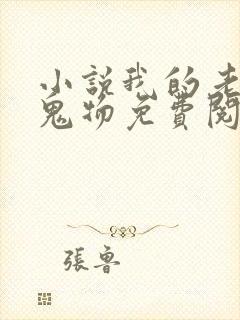 小說我的老
鬼物免費閱
張魯